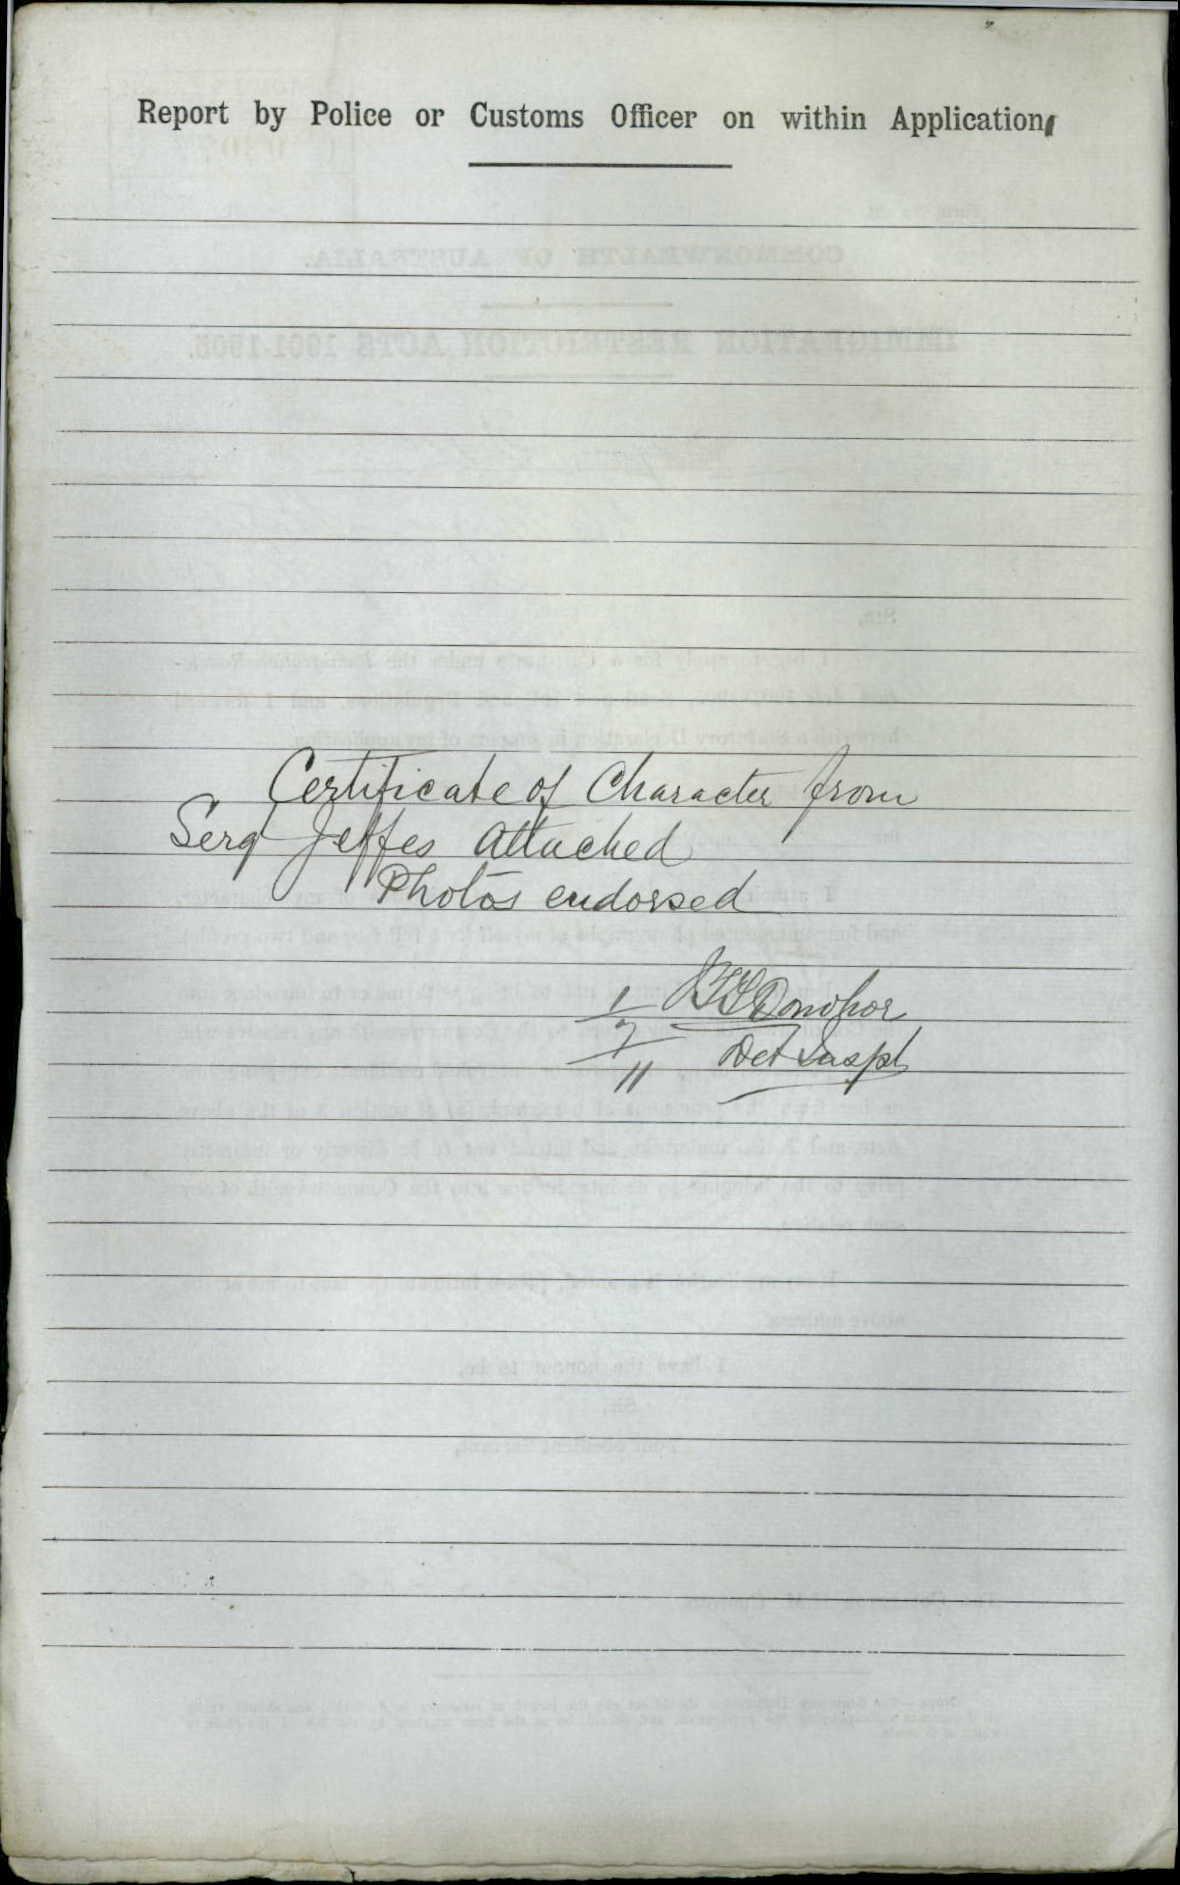 Report by Police or Customs Officer on within Application
Certificate of Character from
Serg Jeffes attached
Photos endorsed
1 Donohor
7 Det Inspt
11